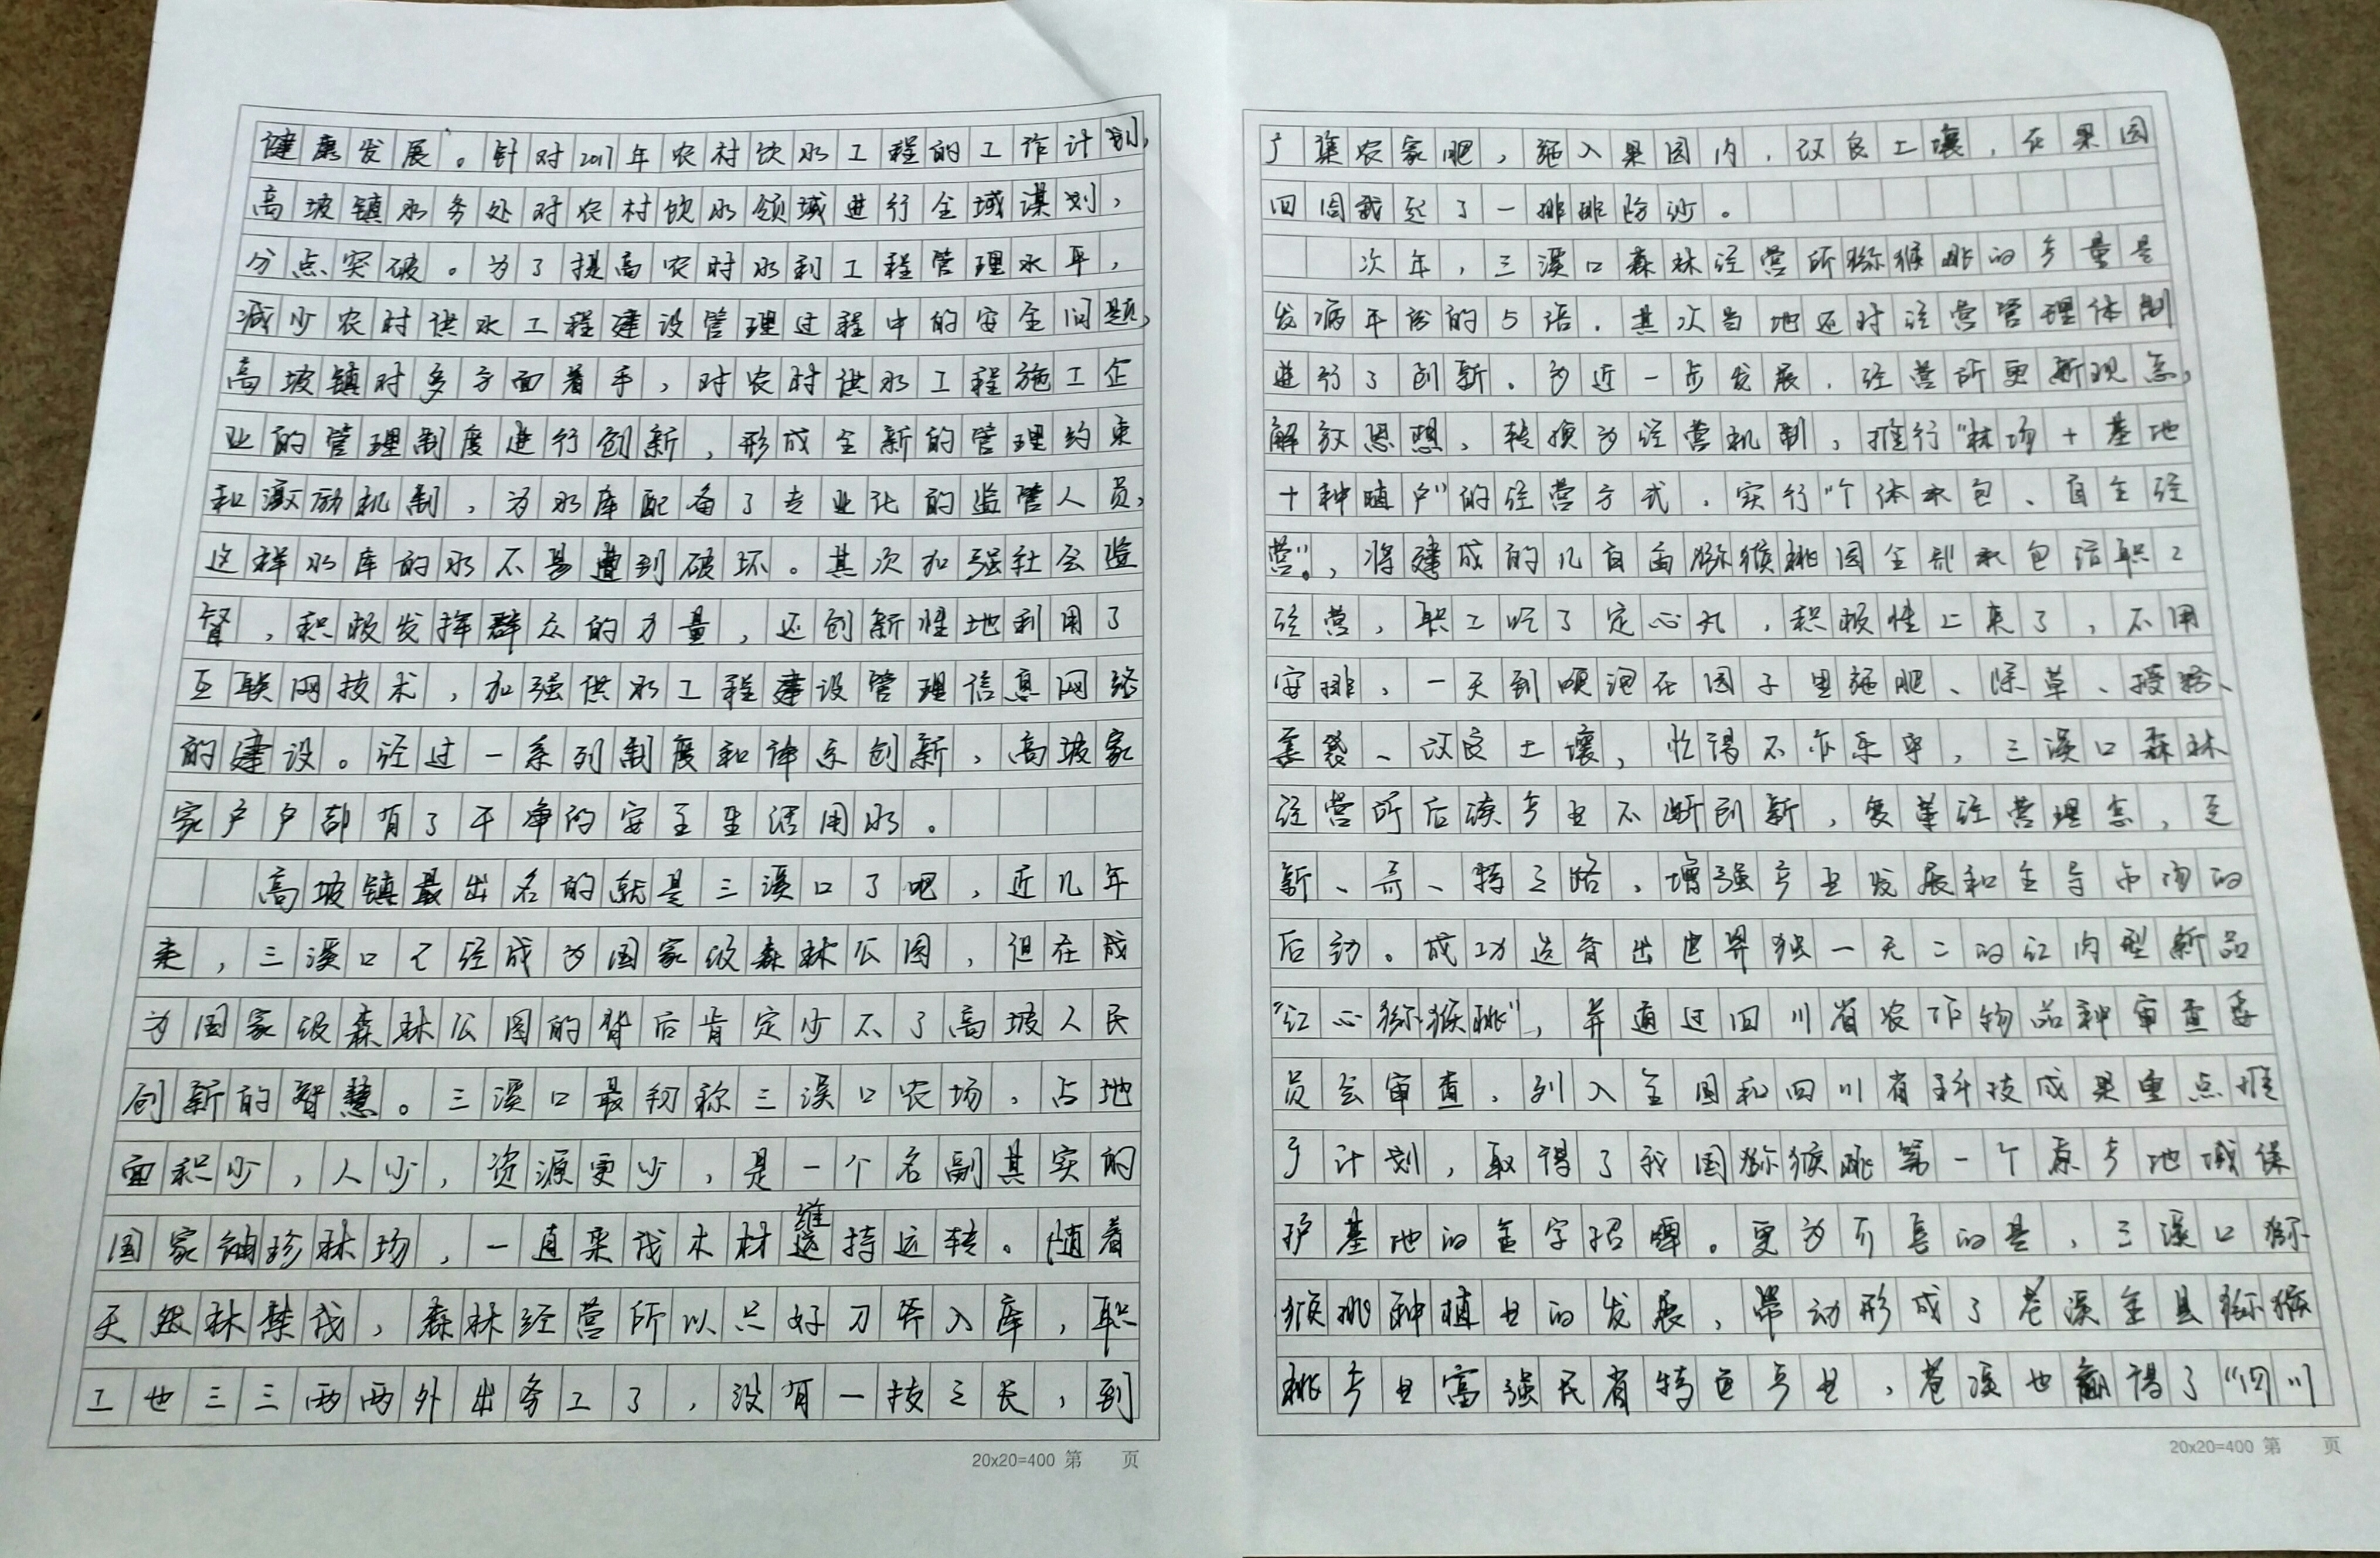 健康发展。针对2017年农村饮水工程的工作计划，
高坡镇水务处对农村饮水领域进行全域谋划，
分点突破。为了提高农村水利工程管理水平，
减少农村供水工程建设管理过程中的安全问题，
高坡镇对多方面着手，对农村供水工程施工企
业的管理制度进行创新，形成全新的管理约束
和激励机制，为水库配备了专业化的监管人员，
这样水库的水不易遭到破坏。其次加强社会监
督，积极发挥群众的力量，还创新性地利用了
互联网技术，加强供水工程建设管理信息网络
的建设。经过一系列制度和体系创新，高坡家
家户户都有了干净的安全生活用水。
高坡镇最出名的就是三溪口了吧，近几年
来，三溪口已经成为国家级森林公园，但在成
为国家级森林公园的背后肯定少不了高坡人民
创新的智慧。三溪口最初称三溪口农场，占地
面积少，人少，资源更少，是一个名副其实的
国家袖珍林场，一直采伐木材维持运转。随着
天然林禁伐，森林经营所以只好刀斧入库，职
工也三三两两外出务工了，没有一技之长，到
广集农家肥，施入果园内，改良土壤，在果园
四周栽起了一排排防沙。
次年，三溪口森林经营所猕猴桃的产量是
发病年份的5倍。其次当地还对经营管理体制
进行了创新。为近一步发展，经营所更新观念，
解放思想，转换为经营机制，推行“林场＋基地
＋种植户”的经营方式，实行“个体承包、自主经
营”。，将建成的几百亩猕猴桃园全部承包给职工
经营，职工吃了定心丸，积极性上来了，不用
安排，一天到晚泡在园子里施肥、除草、授粉、
套袋、改良土壤，忙得不亦乐乎，三溪口森林
经营所后续产业不断创新，变革经营理念，走
新、奇、特之路，增强产业发展和主导市场的
后劲。成功选育出世界独一无二的红肉型新品
“红心猕猴桃”，并通过四川省农作物品种审查委
员会审查，列入全国和四川省科技成果重点推
广计划，取得了我国猕猴桃第一个原产地域保
护基地的金字招牌。更为可喜的是，三溪口猕
猴桃种植业的发展，带动形成了苍溪全县猕猴
桃产业富强民省特色产业，苍溪也赢得了“四川
20x20=400 第 页
20x20=400 第 页